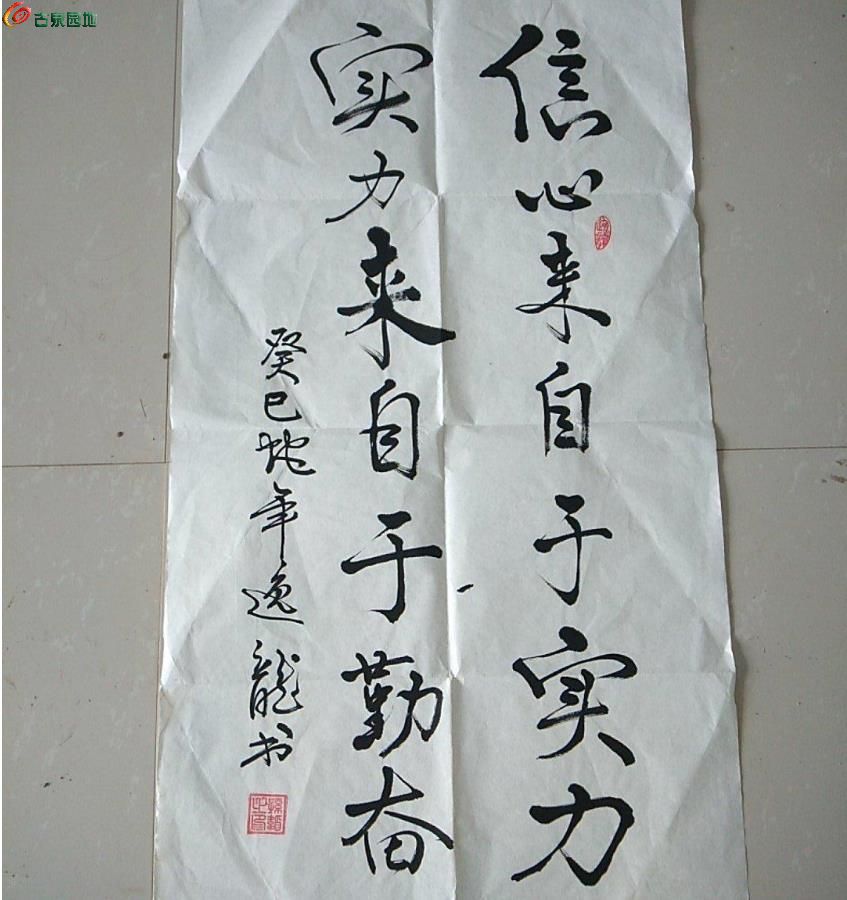 古泉园地
信心来自于实力
实力来自于勤奋
癸巳蛇年逸龍书